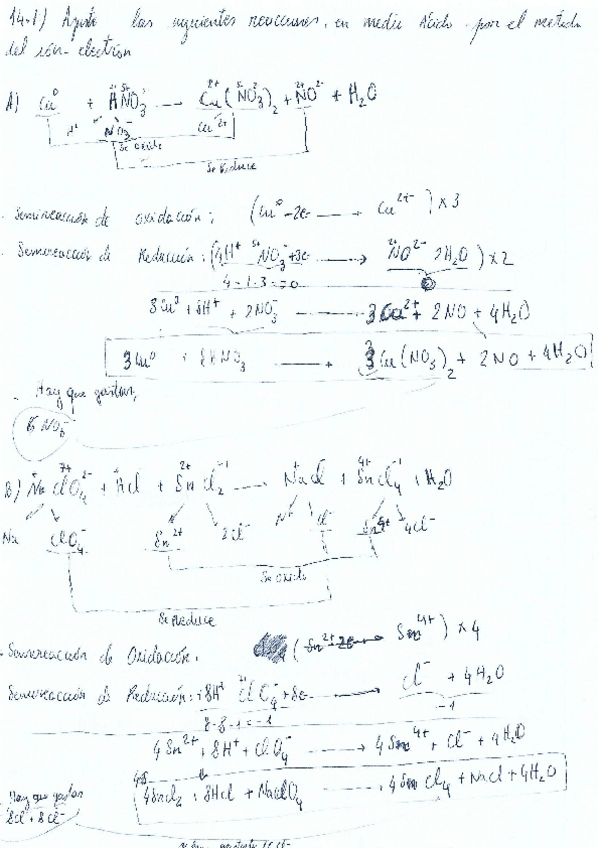 14.1) Ajusta las siguientes reacciones, en medio Ácido por el método
del ión-electrón
A) Cu⁰ + HNO₃ → Cu(NO₃)₂ + NO + H₂O
NO₃⁻ Cu²⁺
Se oxida
Se Reduce
Semireacción de oxidación: (Cu⁰ - 2e → Cu²⁺) x 3
Semireacción de Reducción: (4H⁺ NO₃⁻ + 3e → NO 2H₂O) x 2
4-1-3=0 0
3Cu⁰ + 8H⁺ + 2NO₃⁻ → 3Cu²⁺ + 2NO + 4H₂O
3Cu⁰ + 8HNO₃ → 3Cu(NO₃)₂ + 2NO + 4H₂O
Hay que gastar
6 NO₃⁻
B) NaClO₄ + HCl + SnCl₂ → NaCl + SnCl₄ + H₂O
Na ClO₄⁻ Sn²⁺ 2Cl⁻ Na⁺ Cl⁻ Sn⁴⁺ 4Cl⁻
Se Oxida
Se Reduce
Semireacción de Oxidación: (Sn²⁺ - 2e → Sn⁴⁺) x 4
Semireacción de Reducción: 8H⁺ ClO₄⁻ + 8e → Cl⁻ + 4H₂O
8-8-1=-1 -1
4Sn²⁺ + 8H⁺ + ClO₄⁻ → 4Sn⁴⁺ + Cl⁻ + 4H₂O
4SnCl₂ + 8HCl + NaClO₄ → 4SnCl₄ + NaCl + 4H₂O
Hay que gastar
8Cl⁻